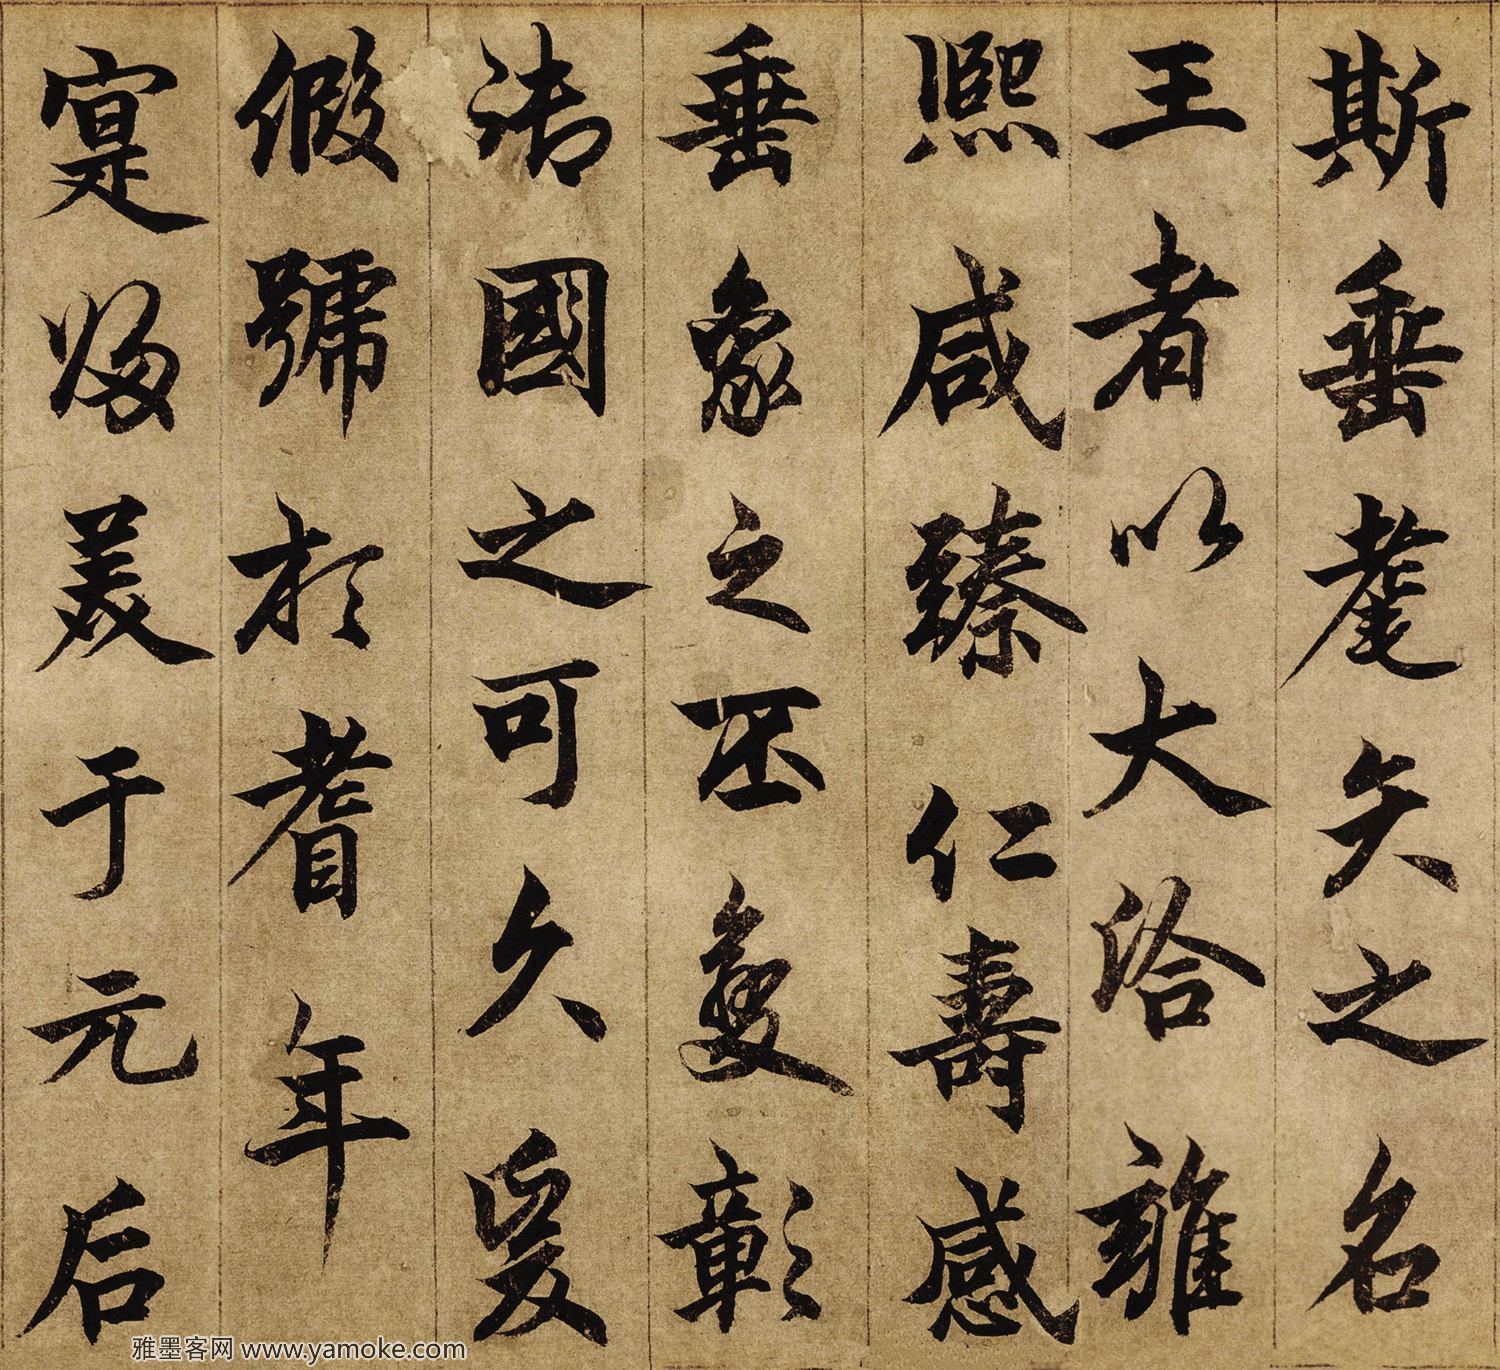 斯垂耄矣之名
王者以大洽雍
熙咸臻仁壽感
垂象之丕變彰
御國之可久爰
假號於耆年
寔歸美于元后
雅墨客网 www.yamoke.com